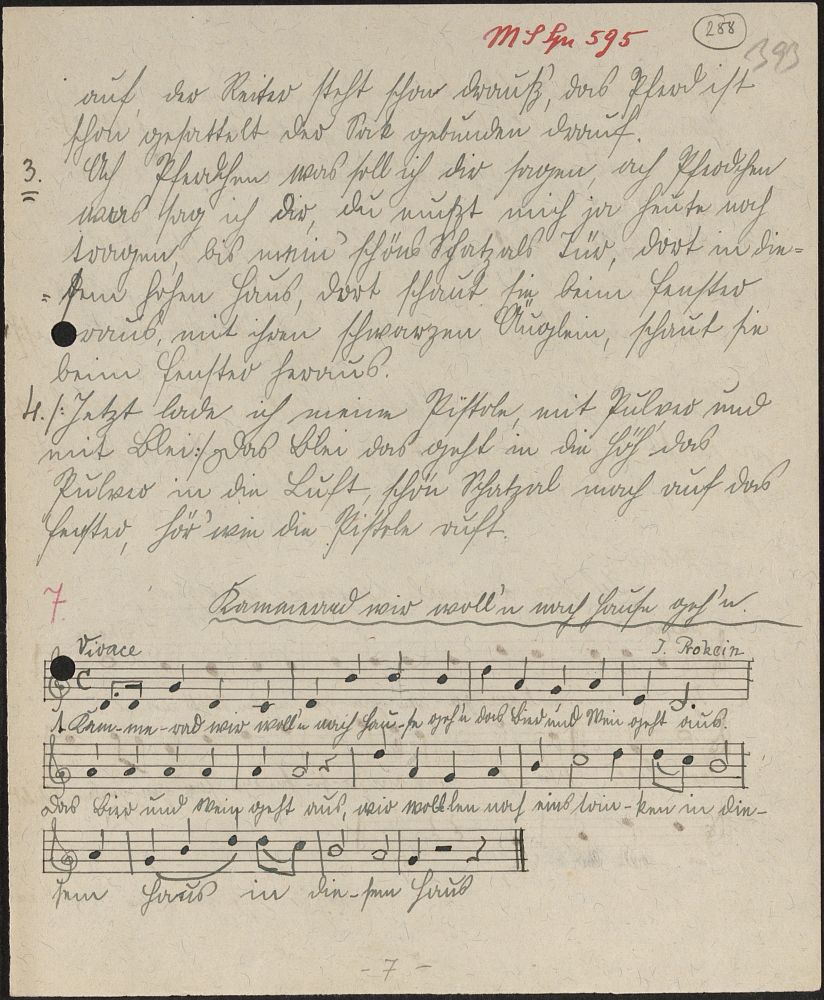 MS Spr 595
288
393
auf, der Reiter steht schon drauß', das Pferd ist
schon gesattelt der Sak gebunden drauf.
3. Ach Pferdchen was soll ich dir sagen, ach Pferdchen
was sag ich dir, du mußt mich ja heute noch
tragen, bis mein schöns Schatzals Tür, dort in die=
=sem hohen Haus, dort schaut sie beim Fenster
raus, mit ihren schwarzen Äuglein, schaut sie
beim Fenster heraus.
4. /: Jetzt lade ich meine Pistole, mit Pulver und
mit Blei :/ Das Blei das geht in die Höh' das
Pulver in die Luft, schön Schatzal mach auf das
Fenster, hör' wie die Pistole ruft.
7. Kammerad wir woll'n nach Hause geh'n.
Vivace J. Prokein
C
Kam-me-rad wir woll'n nach Hau-se geh'n das Bier und Wein geht aus.
Das Bier und Wein geht aus, wir wollen noch eins trin-ken in die-
sem Haus in die-sem Haus
- 7 -